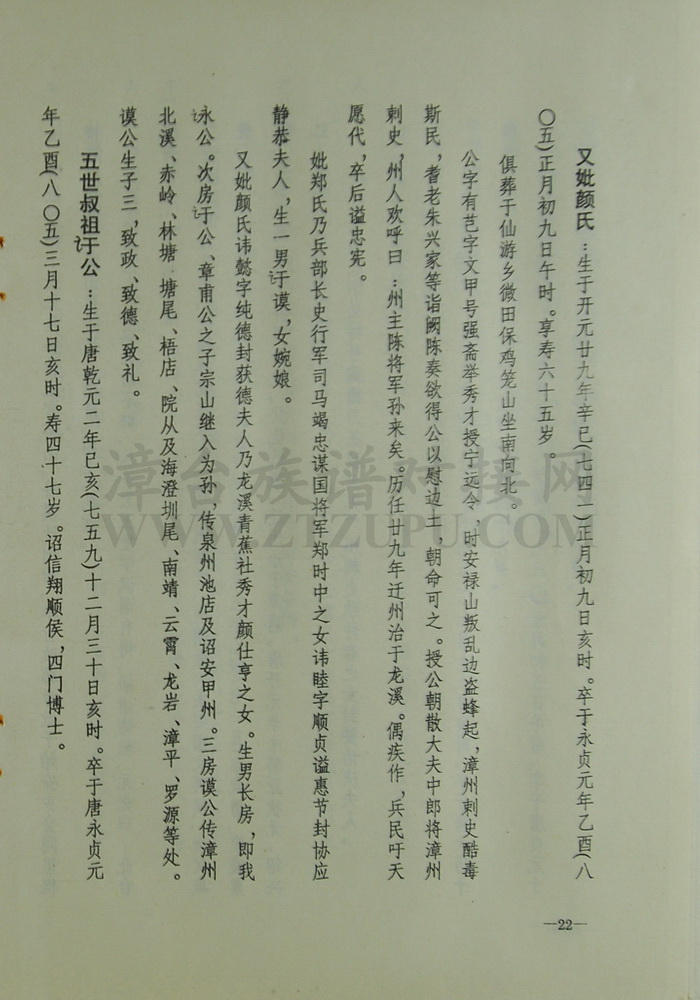 又妣颜氏：生于开元廿九年辛巳(七四一)正月初九日亥时。卒于永贞元年乙酉(八
〇五)正月初九日午时。享寿六十五岁。
俱葬于仙游乡微田保鸡笼山坐南向北。
公字有芑字文甲号强斋举秀才授宁远令，时安禄山叛乱边盗蜂起，漳州刺史酷毒
斯民，耆老朱兴家等诣阙陈奏欲得公以慰边土，朝命可之。授公朝散大夫中郎将漳州
刺史，州人欢呼曰：州主陈将军孙来矣。历任廿九年迁州治于龙溪。偶疾作，兵民吁天
愿代，卒后谥忠宪。
妣郑氏乃兵部长史行军司马竭忠谋国将军郑时中之女讳睦字顺贞谥惠节封协应
静恭夫人，生一男讦谟，女婉娘。
又妣颜氏讳懿字纯德封获德夫人乃龙溪青蕉社秀才颜仕亨之女。生男长房，即我
咏公。次房讦公、章甫公之子宗山继入为孙，传泉州池店及诏安甲州。三房谟公传漳州
北溪、赤岭、林塘、塘尾、梧店、院从及海澄圳尾、南靖、云霄、龙岩、漳平、罗源等处。
谟公生子三，致政、致德、致礼。
五世叔祖讦公：生于唐乾元二年已亥(七五九)十二月三十日亥时。卒于唐永贞元
年乙酉(八〇五)三月十七日亥时。寿四十七岁。诏信翔顺侯，四门博士。
—22—
漳台族谱对接网
WWW.ZTZUPU.COM